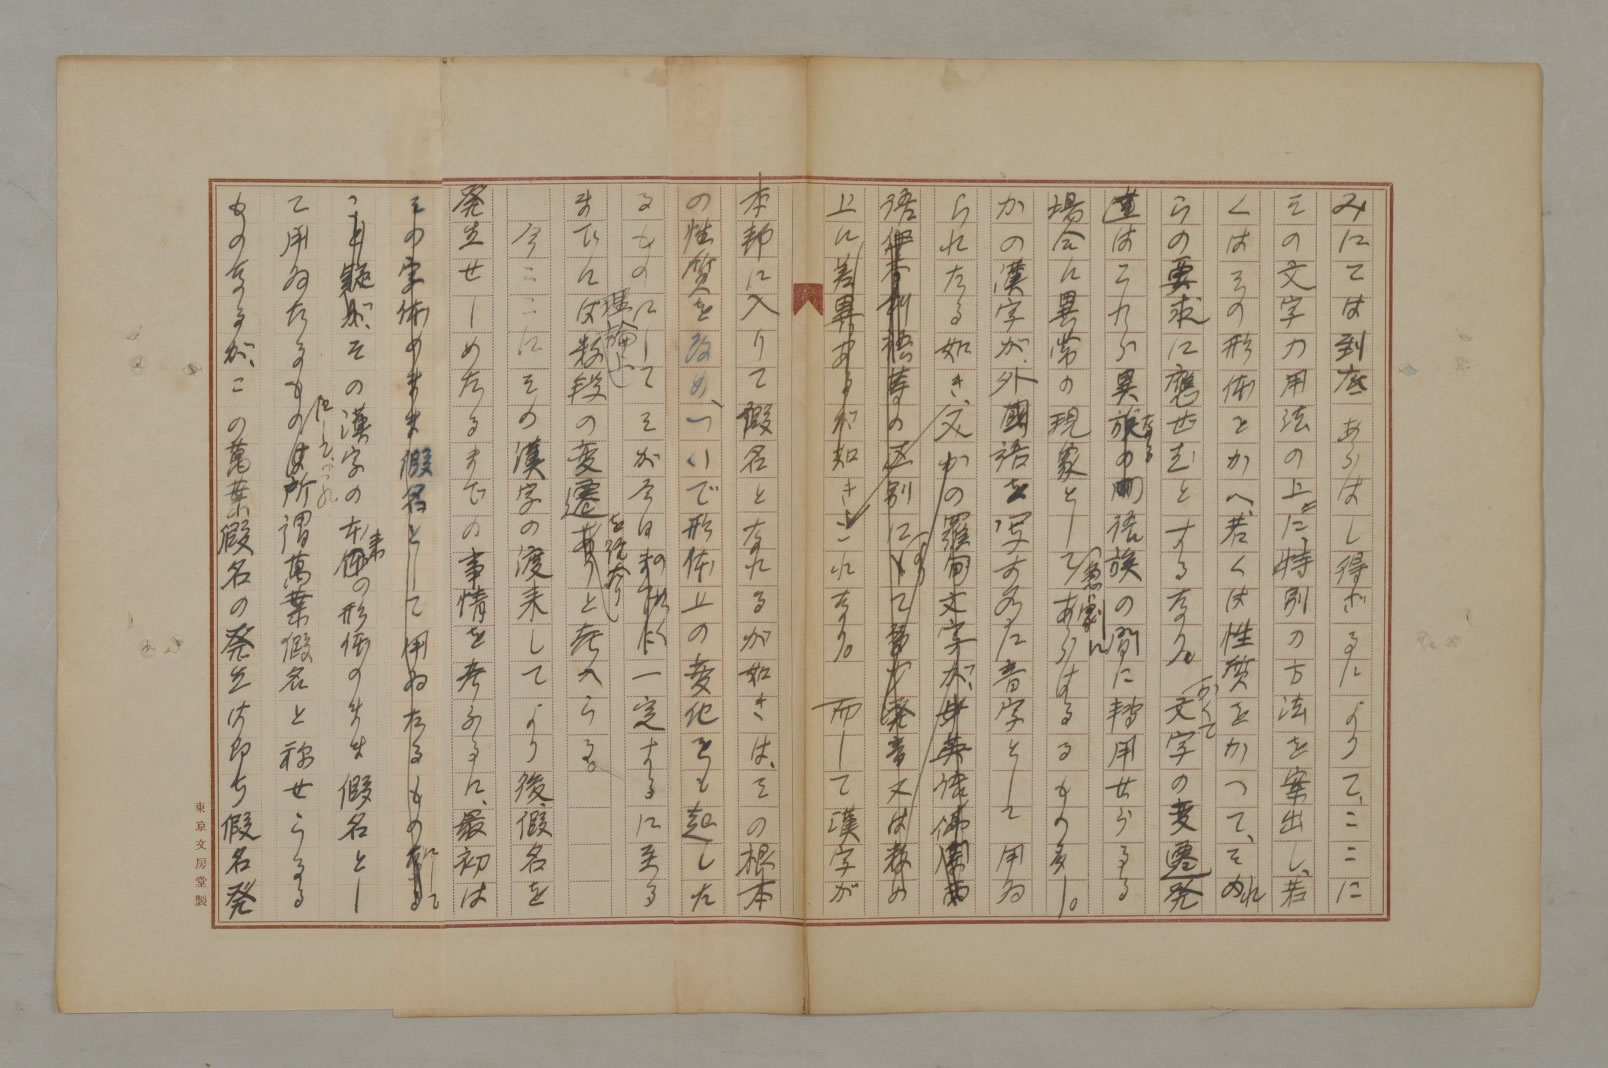 みにては到底あらはし得ざるによりて、ここに
その文字の用法の上に特別の方法を案出し、若
くはその形体をかへ、若くは性質をかつて、それ
らの要求に應せむとするなり。かくて文字の変遷発
達はこれら異なる語族の間に轉用せらるる
場合に異常の現象として急劇にあらはるるもの多し。
かの漢字が、外國語を写す為に音字として用ゐ
られたる如き、又かの羅甸文字が、英語佛蘭西
語伊太利語等の区別によりて発音又は数の
上に差異あるが如きこれなり。而して漢字が
本邦に入りて假名となれるが如きは、その根本
の性質を改め、ついで形体上の変化をも起した
るものにしてそが今日の如くに一定するに至る
までには理論上数段の変遷を経たりと考へらる。
今ここにその漢字の渡来してより後、假名を
発生せしめたるまでの事情を考ふるに、最初は
その字体のまま假名として用ゐたるものにして
その漢字の本来の形体のまま假名とし
て用ゐたるものは所謂萬葉假名と称せらるる
ものなるが、この萬葉假名の発生は即ち假名発
東京文房堂製